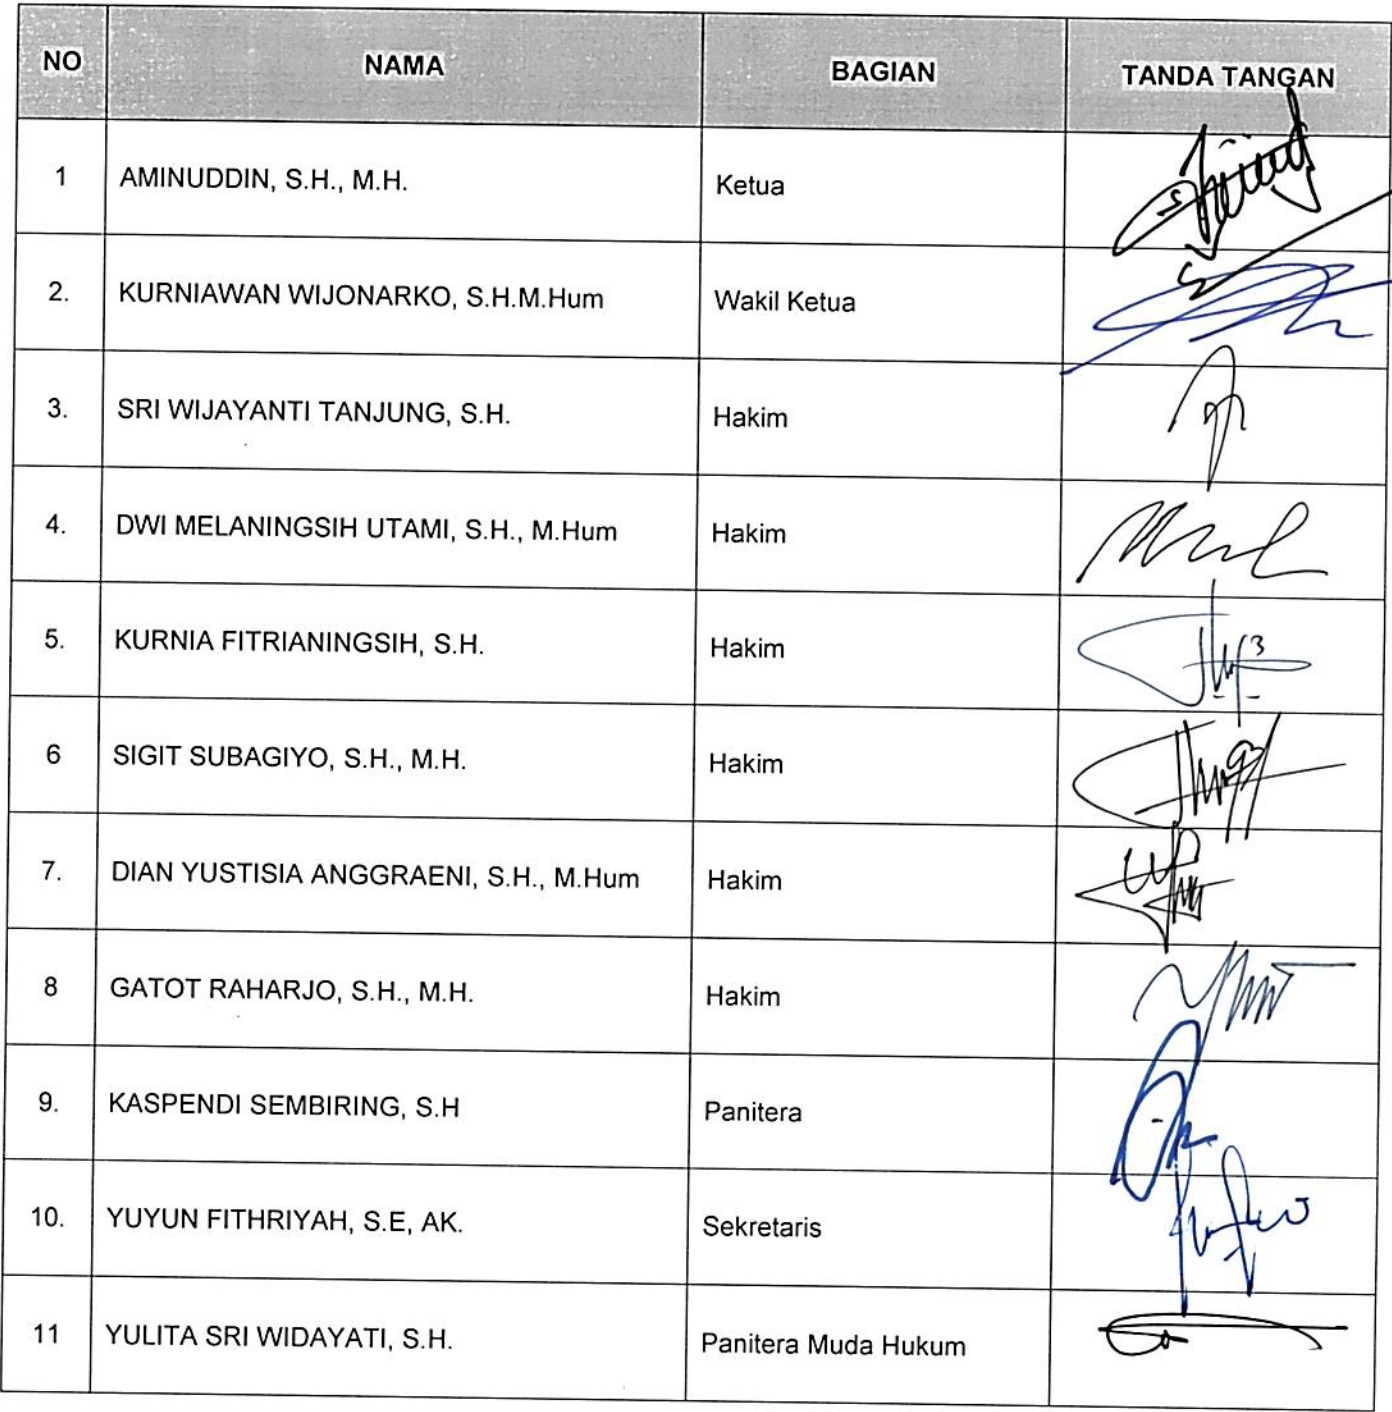 NO NAMA BAGIAN TANDA TANGAN
1 AMINUDDIN, S.H., M.H. Ketua
2. KURNIAWAN WIJONARKO, S.H.M.Hum Wakil Ketua
3. SRI WIJAYANTI TANJUNG, S.H. Hakim
4. DWI MELANINGSIH UTAMI, S.H., M.Hum Hakim
5. KURNIA FITRIANINGSIH, S.H. Hakim
6 SIGIT SUBAGIYO, S.H., M.H. Hakim
7. DIAN YUSTISIA ANGGRAENI, S.H., M.Hum Hakim
8 GATOT RAHARJO, S.H., M.H. Hakim
9. KASPENDI SEMBIRING, S.H Panitera
10. YUYUN FITHRIYAH, S.E, AK. Sekretaris
11 YULITA SRI WIDAYATI, S.H. Panitera Muda Hukum